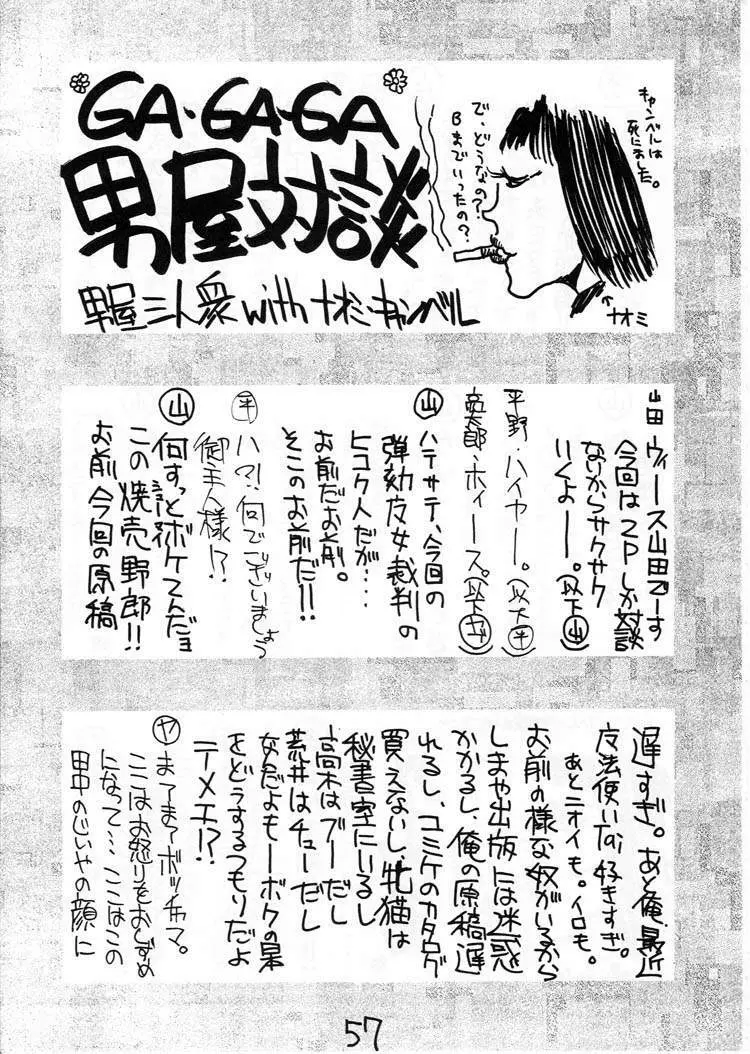 GA・GA・GA
男屋対談
男屋三人衆 with ナオミ・キャンベル
キャンベルは
死にました。
で、どうなの?
Bまでいったの?
ナオミ
山田 ヴィース山田でーす
今回は2Pしか対談
ないからサクサク
いくよーー。(以下山)
平野・ハイヤー。(以下平)
・ホィース。(以下ヤ)
山 ハテサテ、今回の
弾劾友女裁判の
ヒコク人だが‥‥
お前だお前。
そこのお前だ!!
平 ハ?!何でございましょう
御主人様!?
山 何すっとボケてんだョ
この焼売野郎!!
お前今回の原稿
遅すぎ。あと俺、最近
友法使いTai好きすぎ。
あとニオイも。イロも。
お前の様な奴がいるから
しまや出版には迷惑
かかるし、俺の原稿遅
れるし、コミケのカタログ
買えないし、牝猫は
秘書室にいるし
高木はブーだし
荒井はチューだし
なんだよもーボクの
をどうするつもりだよ
テメエ!?
ヤ まてまてボッチャマ。
ここはお怒りをおしずめ
になって…ここはこの
田中のじいやの顔に
57